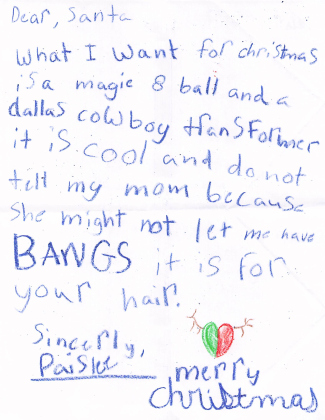 Dear, Santa
What I want for christmas
is a magic 8 ball and a
dallas cowboy transformer
it is cool and do not
tell my mom because
she might not let me have
BANGS it is for
your hair.
Sincerly,
Paisley
merry
christmas